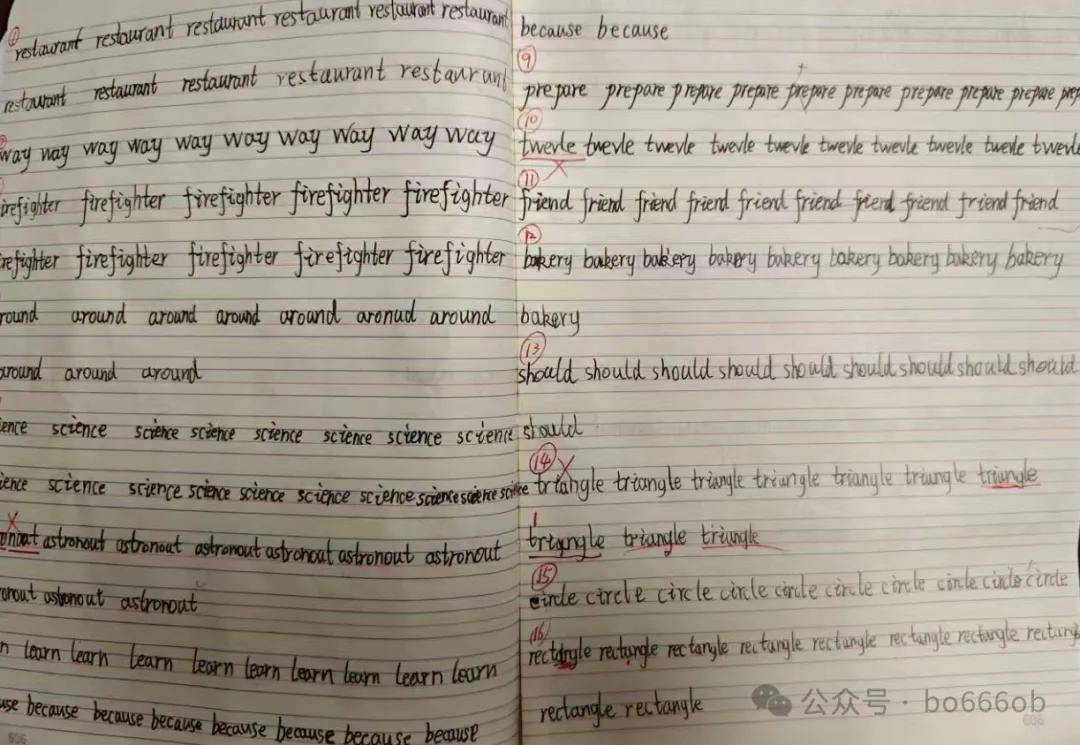 ① restaurant restaurant restaurant restaurant restaurant restaurant
restaurant restaurant restaurant restaurant restaurant
way way way way way way way way way way
irefighter firefighter firefighter firefighter firefighter
refighter firefighter firefighter firefighter firefighter
round around around around around aronud around
around around around
ience science science science science science science science
ience science science science science science science science science science
onout astronout astronout astronout astronout astronout astronout
onout astronout astronout
n learn learn learn learn learn learn learn learn learn
use because because because because because because because
because because
⑨
prepare prepare prepare prepare prepare prepare prepare prepare prepare prep
⑩
twevle twevle twevle twevle twevle twevle twevle twevle twevle twevle
⑪
friend friend friend friend friend friend friend friend friend friend
⑫
bakery bakery bakery bakery bakery bakery bakery bakery bakery
bakery
⑬
should should should should should should should should should
should
⑭
triangle triangle triangle triangle triangle triangle triangle
triangle triangle triangle
⑮
circle circle circle circle circle circle circle circle circle circle
⑯
rectangle rectangle rectangle rectangle rectangle rectangle rectangle rectang
rectangle rectangle
公众号 · bo666ob
606
606